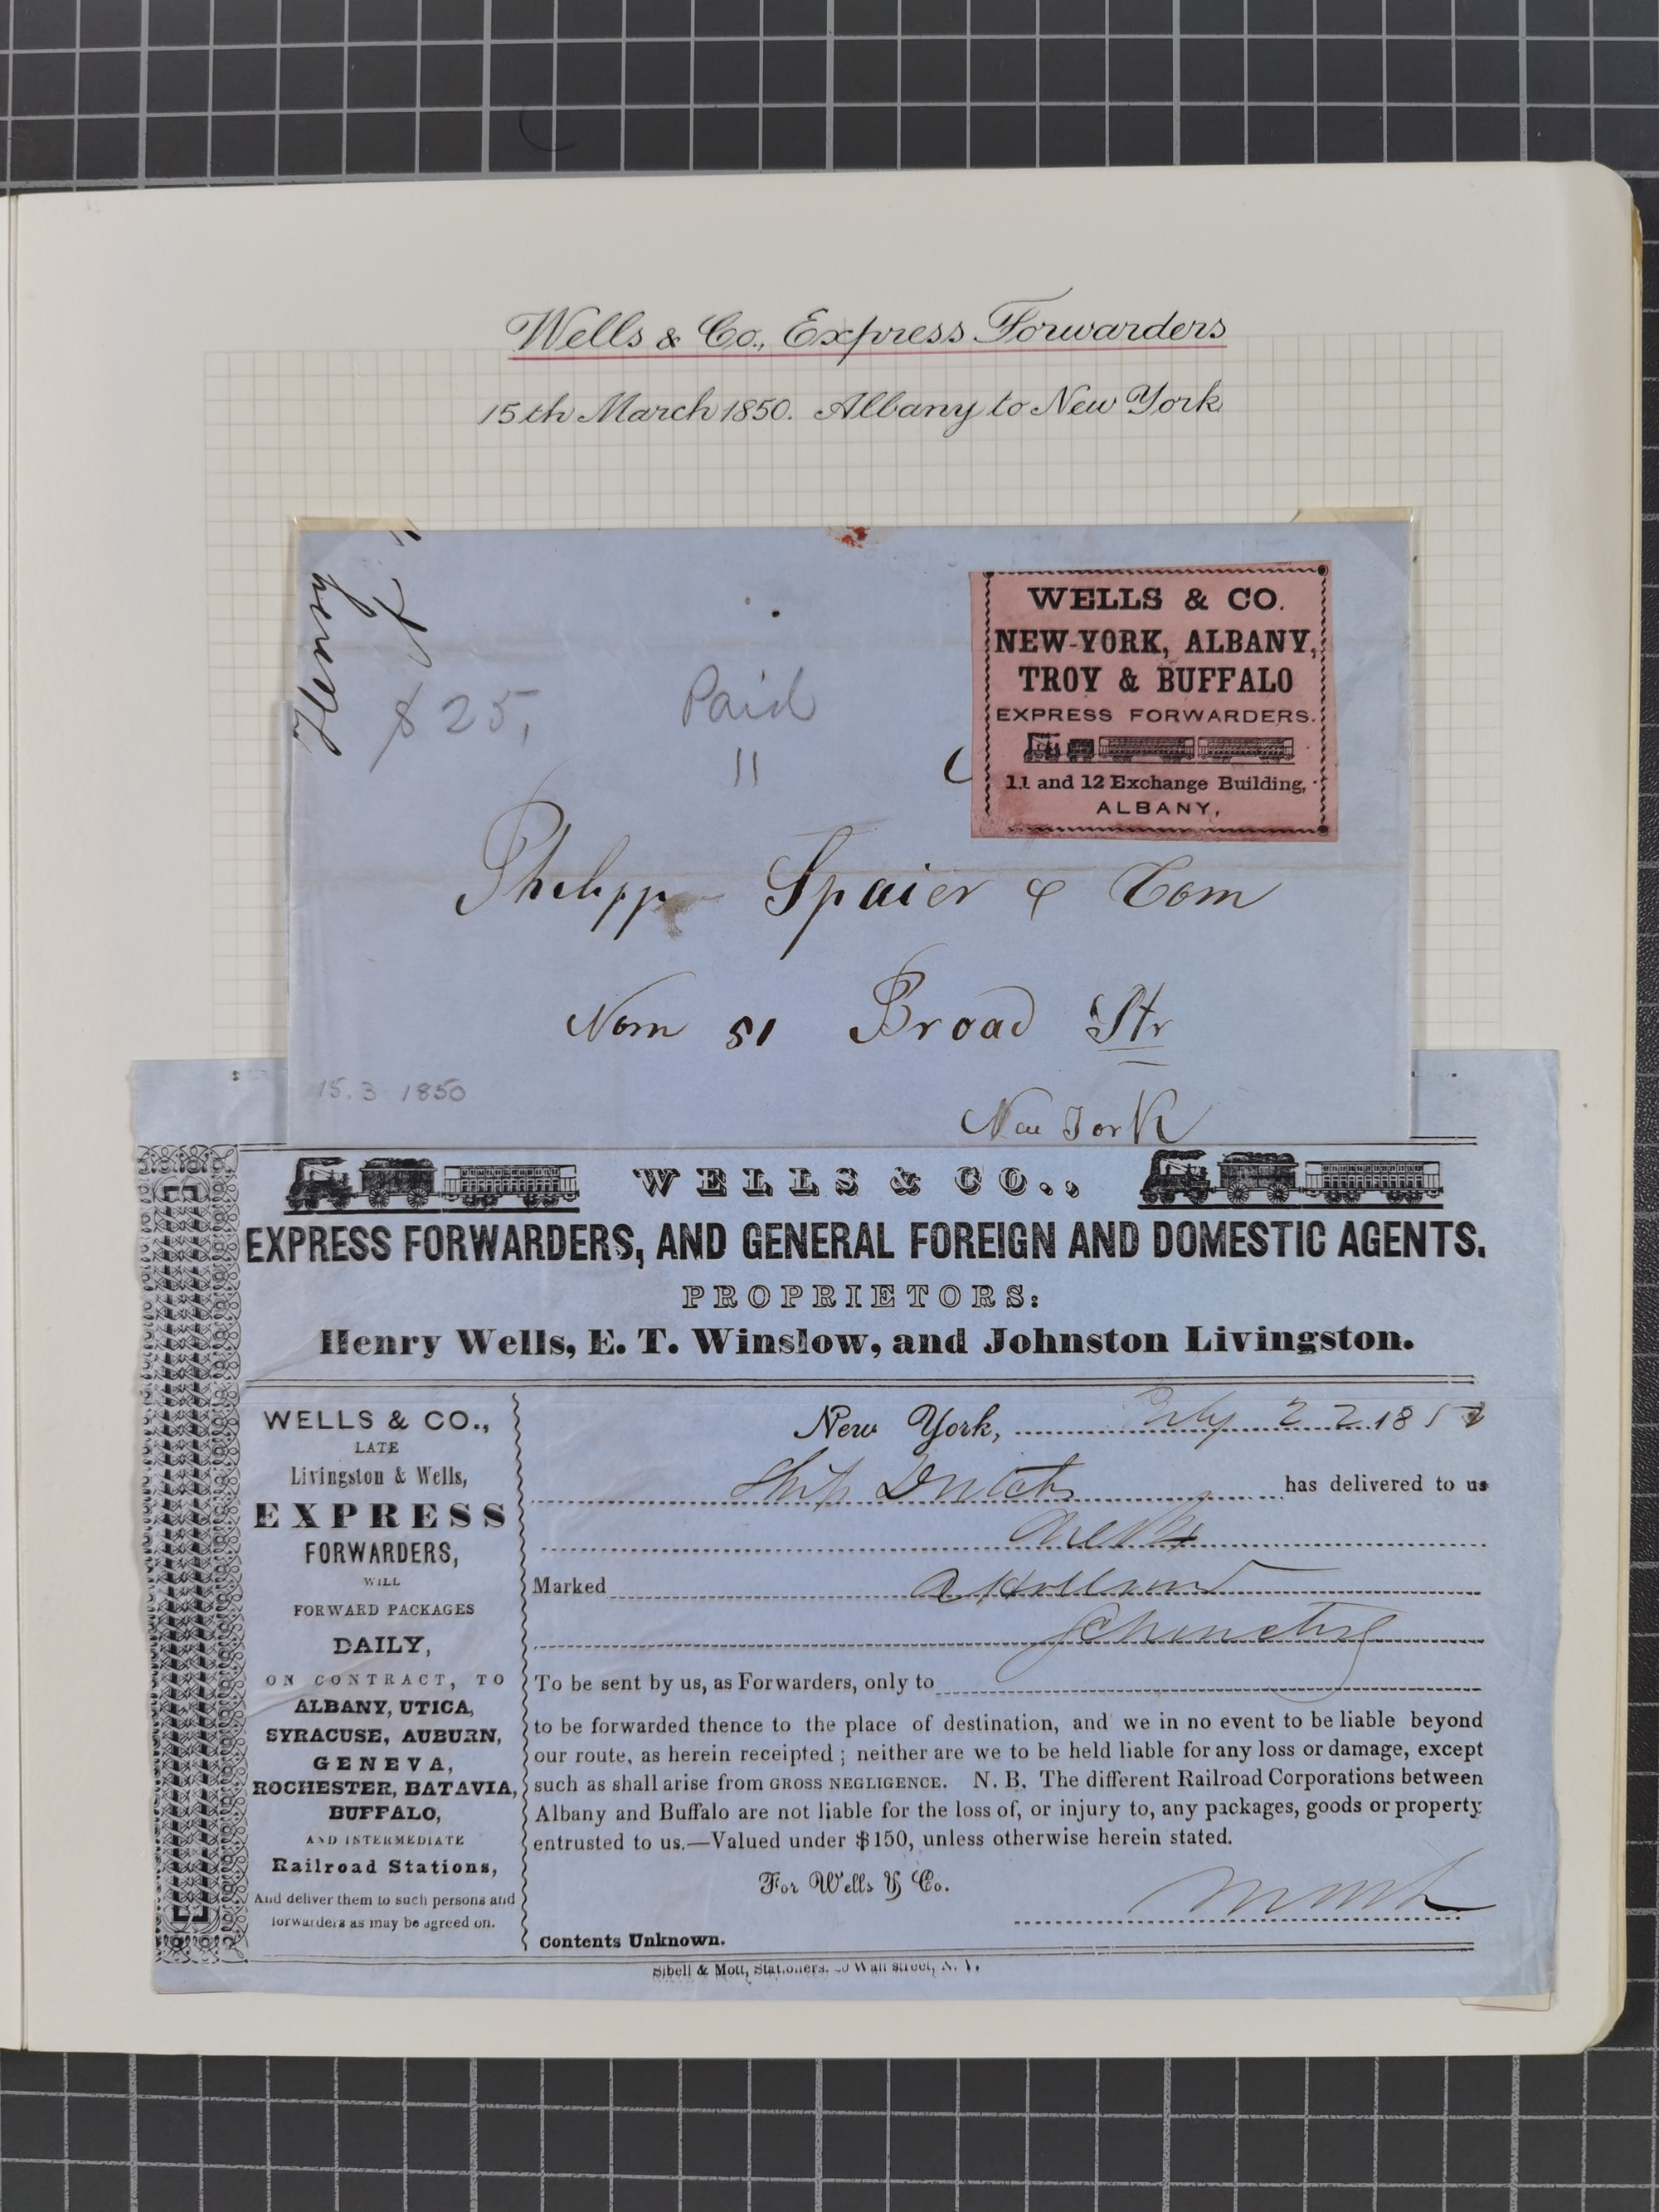 Wells & Co., Express Forwarders
15th March 1850. Albany to New York
Henry
$25,
Paid
11
WELLS & CO.
NEW-YORK, ALBANY,
TROY & BUFFALO
EXPRESS FORWARDERS.
11 and 12 Exchange Building,
ALBANY,
Philipp Spaier & Com
Nom 51 Broad Str
15.3 1850
New York
WELLS & CO.,
EXPRESS FORWARDERS, AND GENERAL FOREIGN AND DOMESTIC AGENTS.
PROPRIETORS:
Henry Wells, E. T. Winslow, and Johnston Livingston.
WELLS & CO.,
LATE
Livingston & Wells,
EXPRESS
FORWARDERS,
WILL
FORWARD PACKAGES
DAILY,
ON CONTRACT, TO
ALBANY, UTICA,
SYRACUSE, AUBURN,
GENEVA,
ROCHESTER, BATAVIA,
BUFFALO,
AND INTERMEDIATE
Railroad Stations,
And deliver them to such persons and
forwarders as may be agreed on.
New York, 22 185
Ship has delivered to us
Marked
To be sent by us, as Forwarders, only to
to be forwarded thence to the place of destination, and we in no event to be liable beyond
our route, as herein receipted; neither are we to be held liable for any loss or damage, except
such as shall arise from GROSS NEGLIGENCE. N. B. The different Railroad Corporations between
Albany and Buffalo are not liable for the loss of, or injury to, any packages, goods or property
entrusted to us.—Valued under $150, unless otherwise herein stated.
For Wells & Co.
Contents Unknown.
Sibell & Mott, Stationers, Wall street, N. Y.